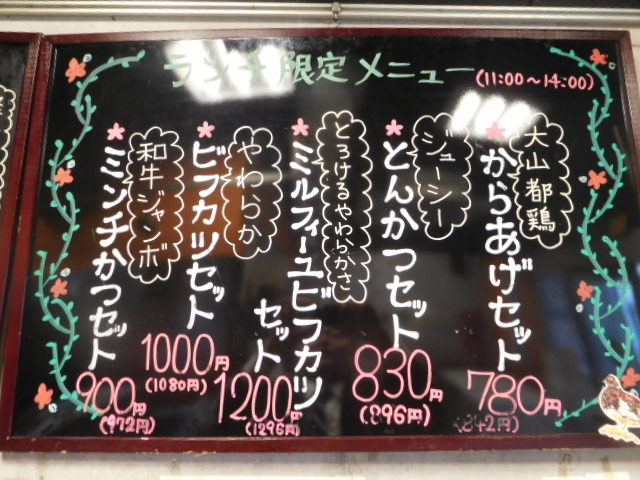 ランチ限定メニュー(11:00～14:00)
大山都鶏
からあげセット
780円
(842円)
ジューシー
とんかつセット
830円
(896円)
とろけるやわらかさ
ミルフィーユビフカツ
セット
1200円
(1296円)
やわらか
ビフカツセット
1000円
(1080円)
和牛ジャンボ
ミンチかつセット
900円
(972円)